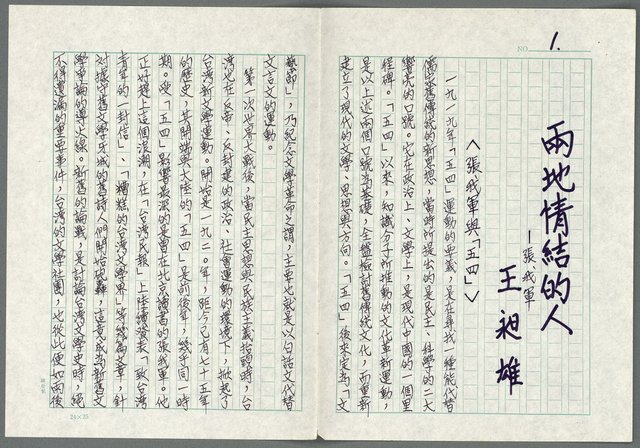 NO. 1.
兩地情結的人
—張我軍
王昶雄
〈張我軍與「五四」〉
一九一九年「五四」運動的要義,是在尋找一種能代替
儒家舊傳統的新思想,當時所提出的是民主、科學的二大
響亮的口號。它在政治上、文學上,是現代中國的一個里
程碑。「五四」以來,知識分子所推動的文化革新運動,
是以上述兩個口號為基礎,全盤檢討舊傳統文化,而重新
建立了現代的文學、思想與方向。「五四」後來定為「文
藝節」,乃紀念文學革命之謂,主要也就是以白話文代替
文言文的運動。
第一次世界大戰後,當民主思想與民族主義抬頭時,台
灣也在反帝、反封建的政治、社會運動的環境下,掀起了
台灣新文學運動。開始是一九二〇年,距今已有七十五年
的歷史,其開端與大陸的「五四」是前後年,幾乎同一時
期。受「五四」點響最深的是曾在北京讀書的張我軍。他
正好趕上這個浪潮,在「台灣民報」上陸續發表「致台灣
青年的一封信」、「糟糕的台灣文學界」等幾篇文章,針
對據守舊文學牙城的舊詩人們開始砲轟,這竟成為新舊文
學爭論的導火線。新舊的論戰,是討論台灣文學史時,絕
不得遺漏的重要事件,台灣的文學社團,也從此便如雨後
24×25